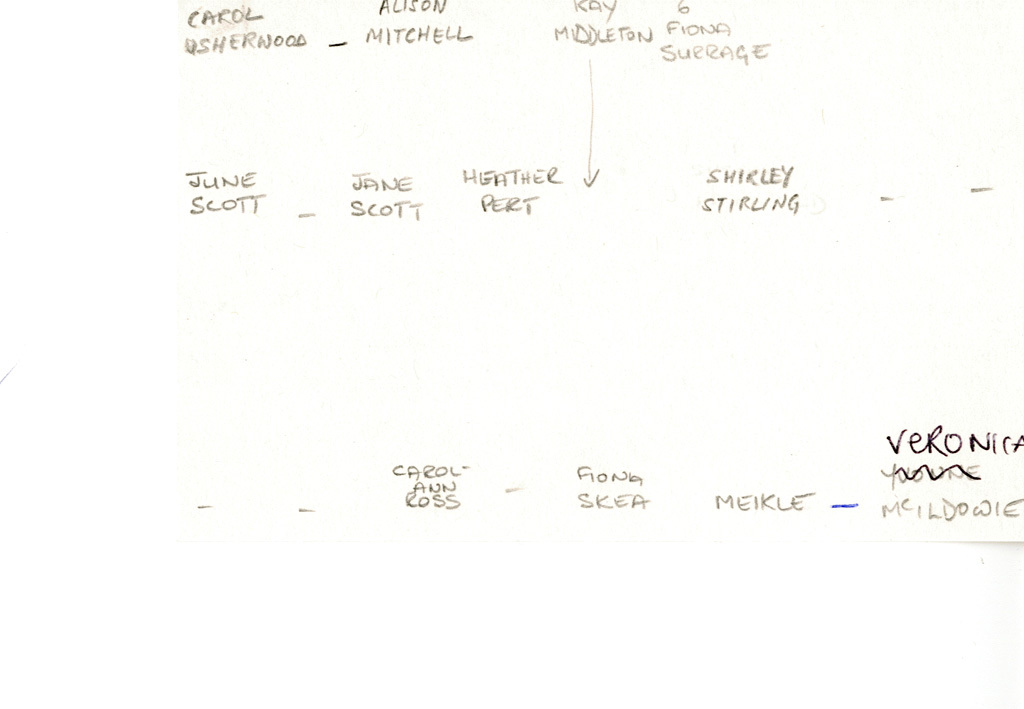 CAROL ALISON KAY 6
USHERWOOD – MITCHELL MIDDLETON FIONA
SURRAGE
JUNE JANE HEATHER SHIRLEY
SCOTT – SCOTT PERT STIRLING – –
VERONICA
CAROL- FIONA YVONNE
ANN
– – ROSS – SKEA MEIKLE – McILDOWIE